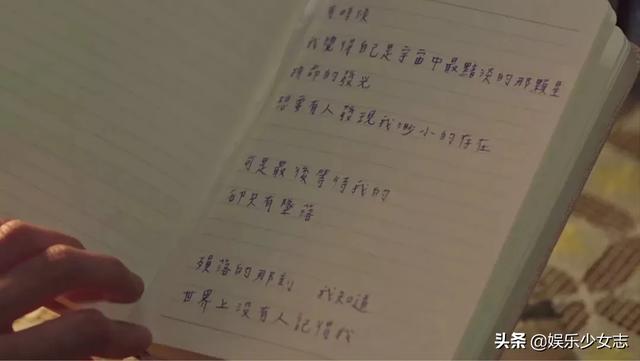 有時候
我覺得自己是宇宙中最黯淡的那顆星
拼命的發光
想要有人發現我渺小的存在
可是最後等待我的
卻只有墜落
殞落的那刻 我知道
世界上沒有人記得我
头条 @娱乐少女志